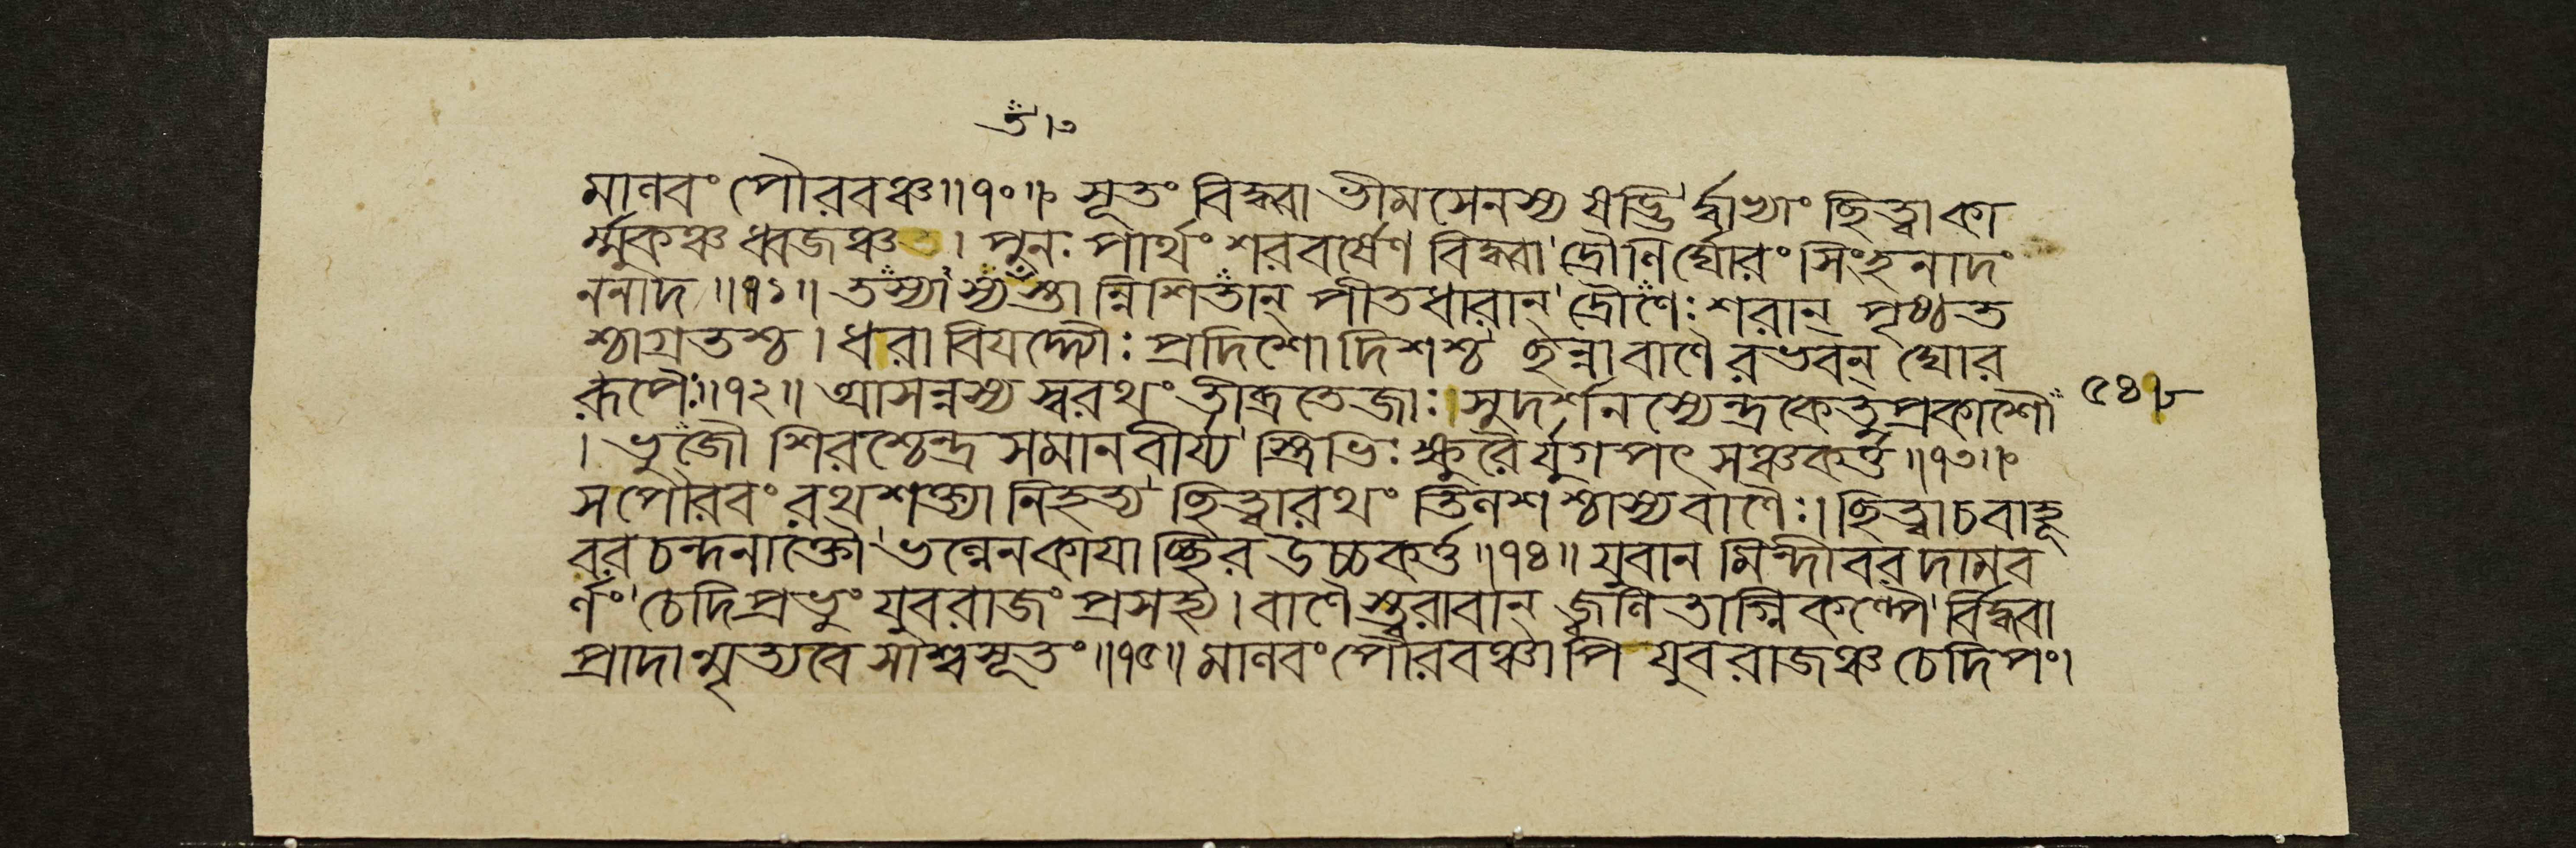 র্ত।৩
মানবং পৌরবঞ্চ॥৭০॥ সূতং বিদ্ধ্বা ভীমসেনস্য ষড্ভি র্দ্বাভ্যাং ছিত্ত্বা কা
র্ম্মুকঞ্চ ধ্বজঞ্চ । পুনঃ পার্থং শরবর্ষেণ বিদ্ধ্বা দ্রৌণি র্ঘোরং সিংহনাদং
ননাদ ॥৭১॥ তস্যাস্যতস্তা ন্নিশিতান্ পীতধারান্ দ্রৌণেঃ শরান্ পৃষ্ঠত
শ্চাগ্রতশ্চ । ধরা বিয়দ্দ্যৌঃ প্রদিশো দিশশ্চ ছন্না বাণৈ রভবন্ ঘোর
রূপৈঃ॥৭২॥ আসন্নস্য স্বরথং তীব্রতেজাঃ সুদর্শনস্যেন্দ্রকেতুপ্রকাশৌ ৫৪৮
। ভুজৌ শিরশ্চেন্দ্র সমানবীর্য্য স্ত্রিভিঃ ক্ষুরৈ র্যুগপৎ সঞ্চকর্ত্ত ॥৭৩॥
স পৌরবং রথশক্ত্যা নিহত্য ছিত্ত্বা রথং তিলশ শ্চাস্য বাণৈঃ। ছিত্ত্বা চ বাহূ
বর চন্দনাক্তৌ ভল্লেন কায়া চ্ছির উচ্চকর্ত্ত ॥৭৪॥ যুবান মিন্দীবর দামব
র্ণং চেদিপ্রভুং যুবরাজং প্রসহ্য । বাণৈ স্ত্বরাবান্ জ্বলিতাগ্নিকল্পৈ র্বিদ্ধ্বা
প্রাদান্মৃত্যবে সাশ্বসূতং ॥৭৫॥ মানবং পৌরবঞ্চাপি যুবরাজঞ্চ চেদিপং।